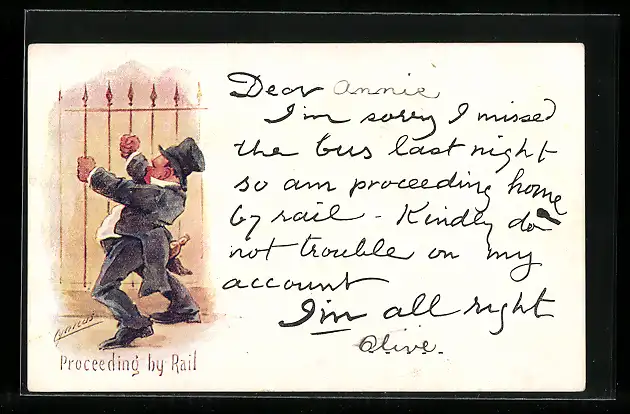 Dear Annie
I'm sorry I missed
the bus last night
so am proceeding home
by rail - Kindly do
not trouble on my
account
I'm all right
Olive.
Proceeding by Rail